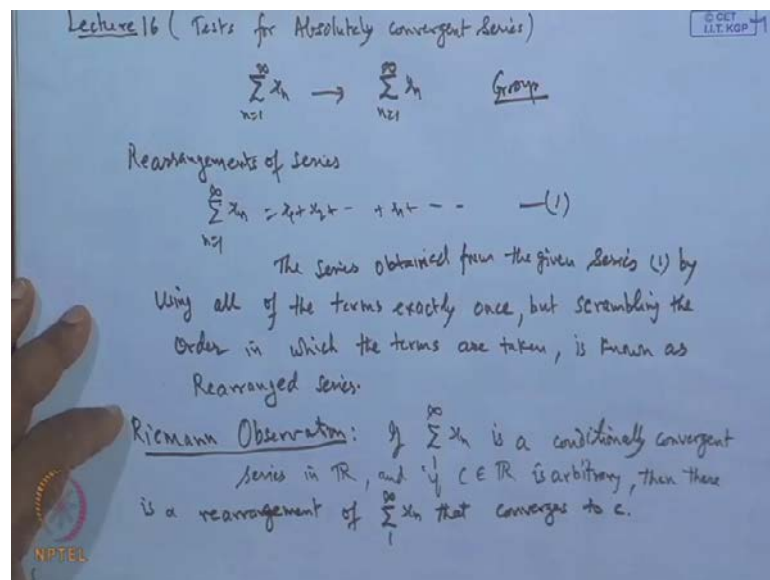 Lecture 16 ( Tests for Absolutely convergent Series)
© CET
I.I.T. KGP
∞
∑ xn → ∑ xn Group
n=1 n=1
Rearrangements of series
∞
∑ xn = x1 + x2 + - + xn + - - —(1)
n=1
The series obtained from the given Series (1) by
Using all of the terms exactly once, but scrambling the
Order in which the terms are taken, is known as
Rearranged series.
Riemann Observation: If ∑ xn is a conditionally convergent
series in ℝ, and if C ∈ ℝ is arbitrary, then there
is a rearrangement of ∑ xn that converges to c.
NPTEL